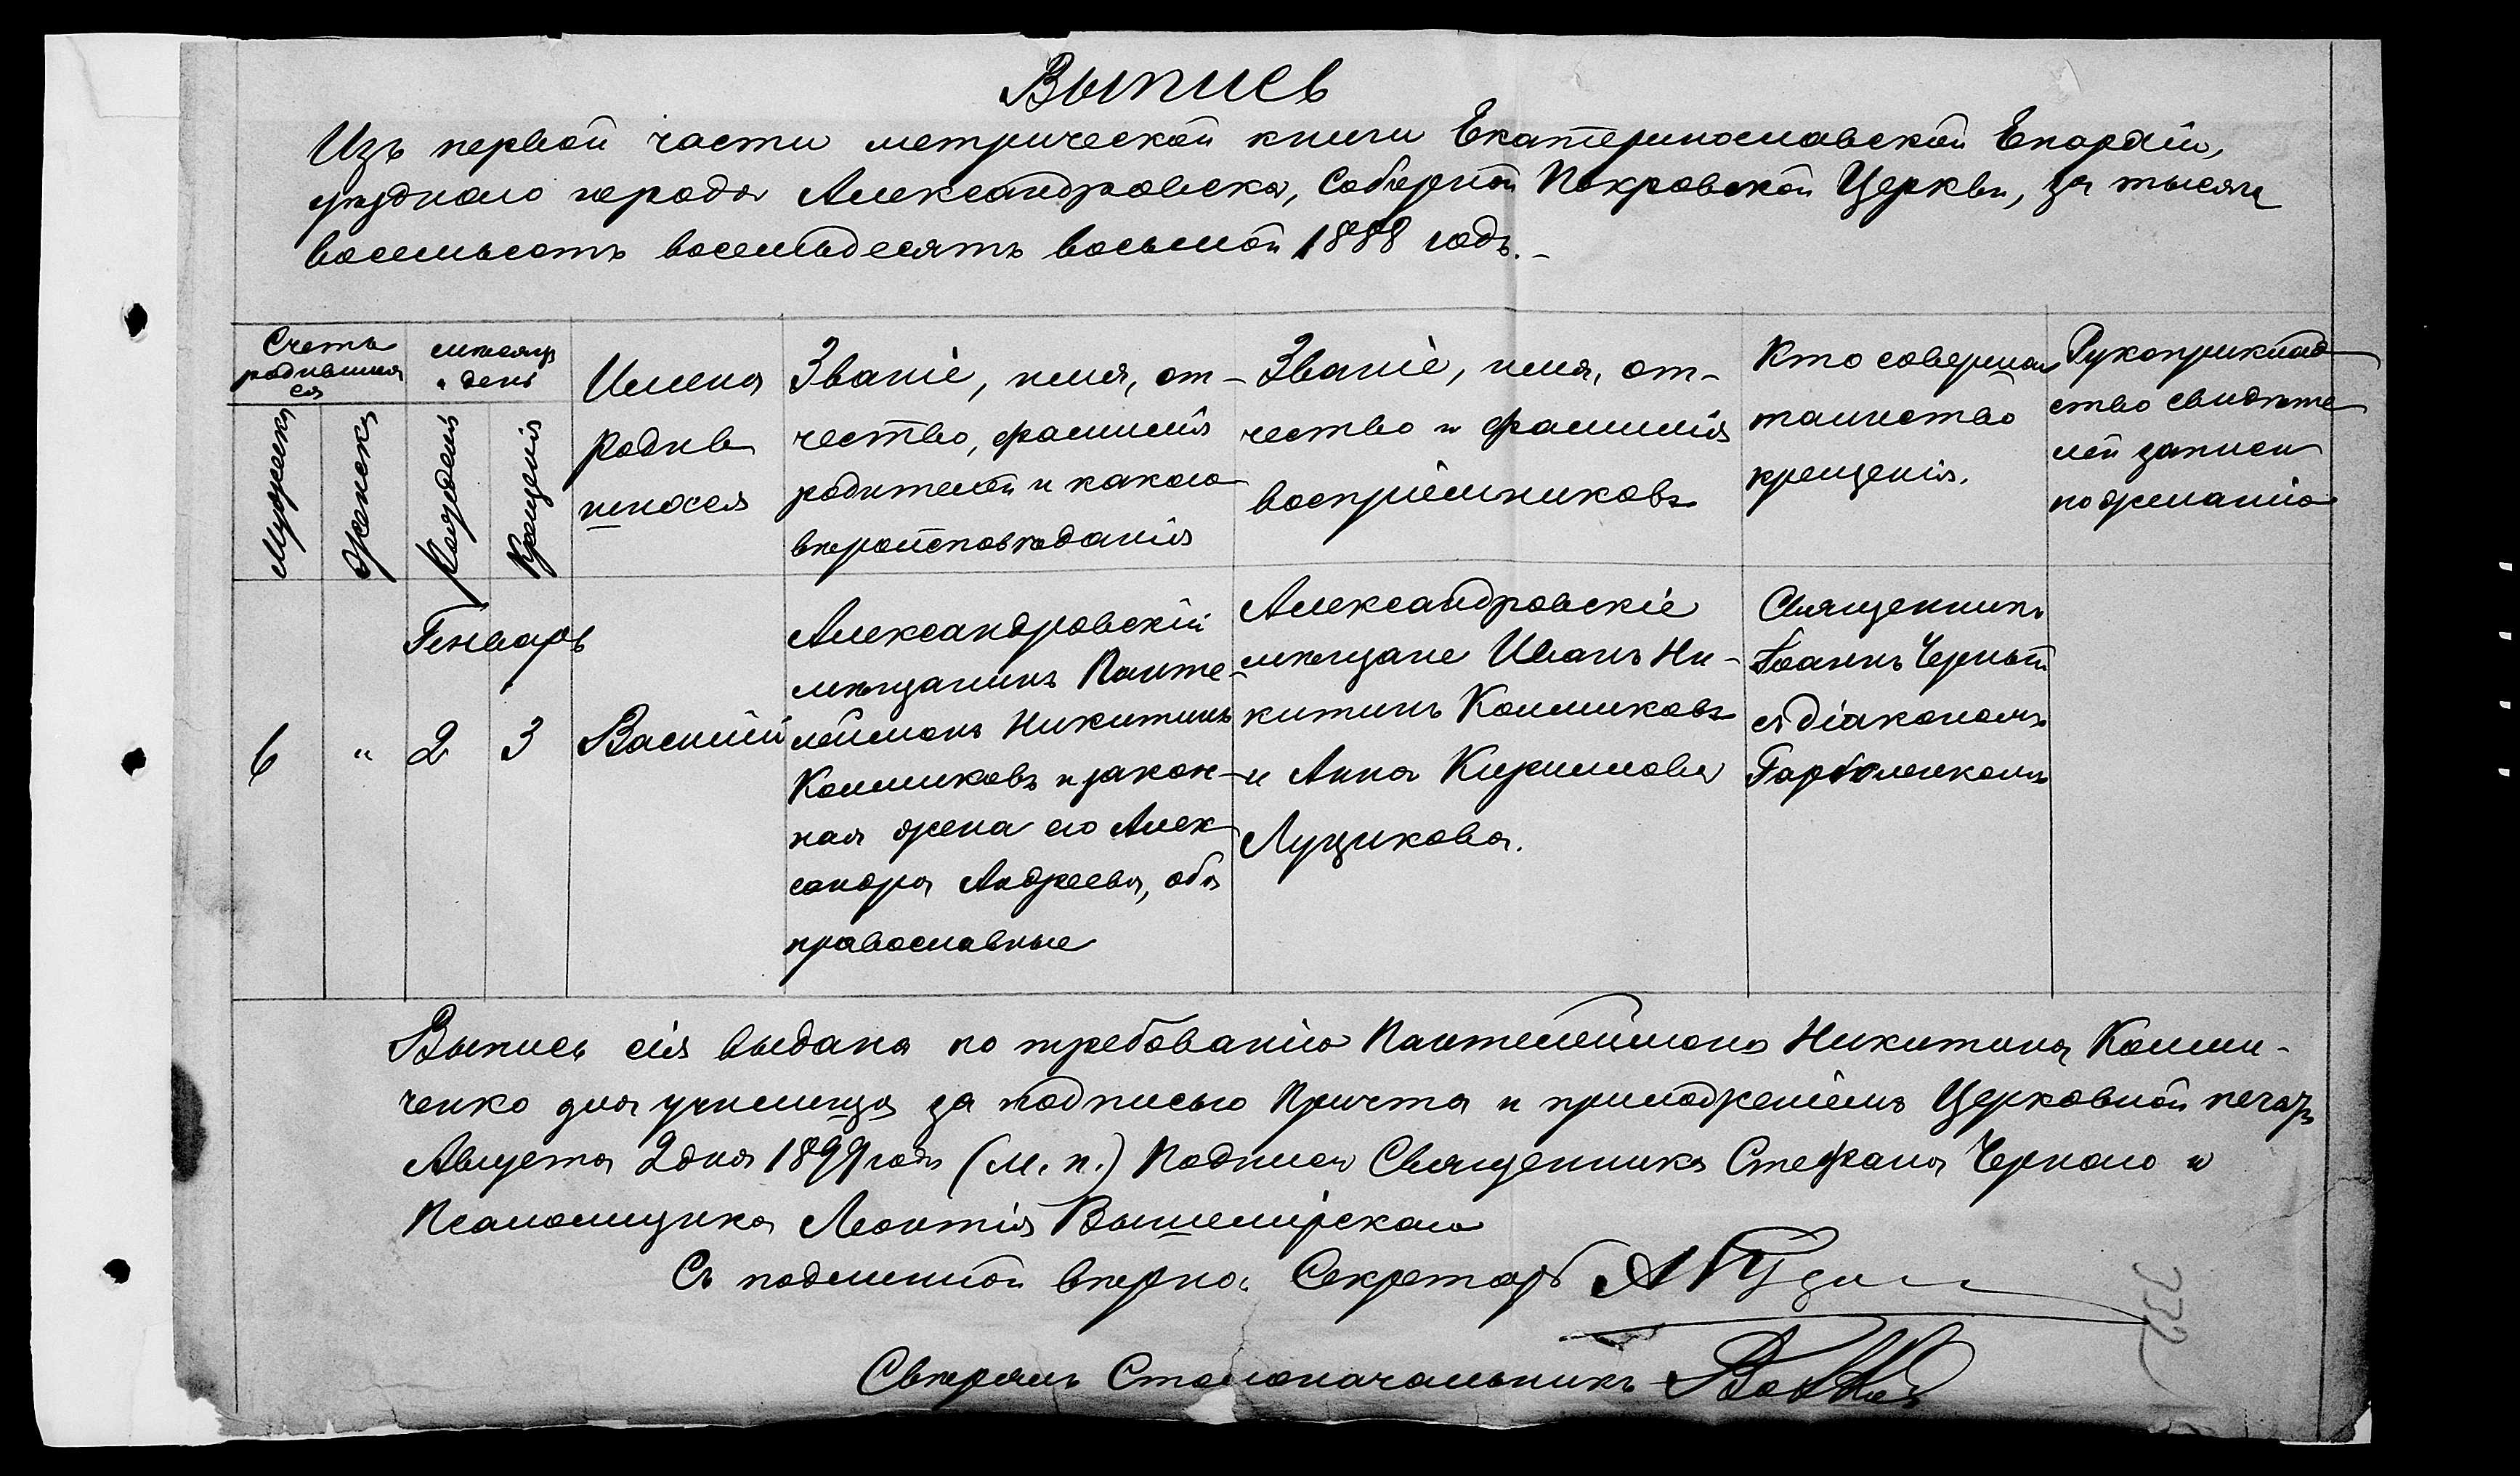 Выпись
Изъ первой части метрической книги Екатеринославской Епархіи,
уѣзднаго города Александровска, Соборной Покровской Церкви, за тысяча
восемьсотъ восемьдесятъ восьмой 1888 годъ.-
Счетъ
родивших
ся
Мужеска
Женска
мѣсяцъ
и день
Рожденія
Крещенія
Имена
родив
шихся
Званіе, имя, от-
чество, фамилія
родителей и какого
вѣроисповѣданія
Званіе, имя, от-
чество и фамилія
воспріемниковъ
Кто совершал
таинство
крещенія.
Рукоприклад
ство свидѣте
лей записи
по желанію
Генварь
6
"
2
3
Василій
Александровскій
мѣщанинъ Панте-
леймонъ Никитинъ
Колмиковъ и закон-
ная жена его Алек
сандра Андреева, оба
православные
Александровскіе
мѣщане Иванъ Ни-
китинъ Колмиковъ
и Анна Кирилова
Луцикова.
Священникъ
Іоаннъ Черный
съ діакономъ
Выпись сія выдана по требованію Пантелеймона Никитина Колми-
ченко для училища за подписью Причта и приложеніемъ Церковной печати
Августа 2 дня 1899 года (м. п.) Подписи Священника Стефана Чернаго и
Псаломщика Леонтія Вышемірскаго
Съ подлинной вѣрно: Секретарь
Свѣрялъ Столоначальникъ